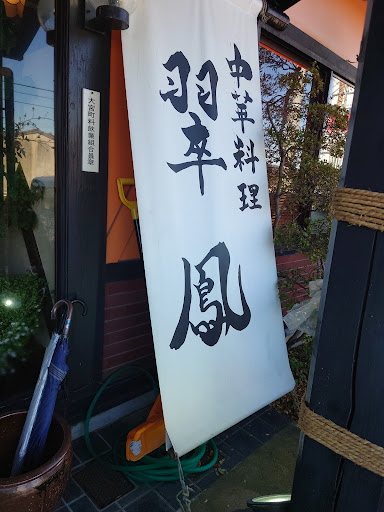 中華料理
翠鳳
大宮町料飲業組合員章